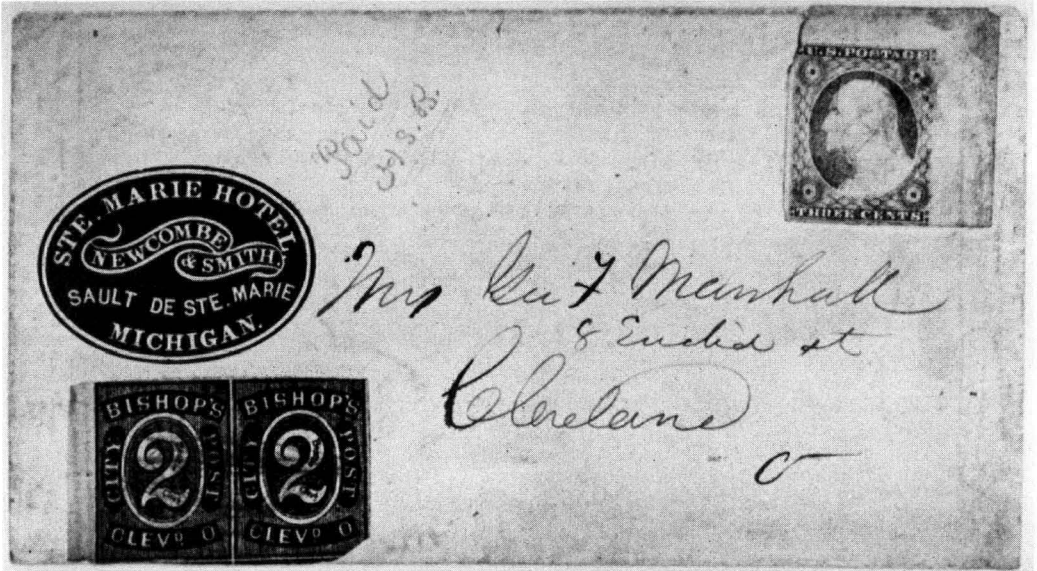 U.S. POSTAGE
THREE CENTS
Paid
H.S.B.
STE. MARIE HOTEL,
NEWCOMBE
& SMITH.
SAULT DE STE. MARIE
MICHIGAN.
Mrs Geo F Marshall
8 Euclid st
Cleveland
O
BISHOP'S BISHOP'S
CITY 2 POST CITY 2 POST
CLEVD. O CLEVD. O